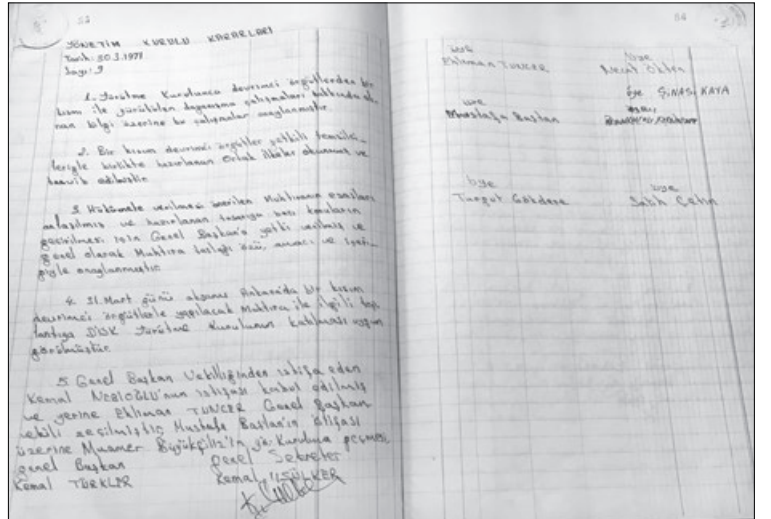 52
YÖNETİM KURULU KARARLARI
Tarih: 30.3.1971
Sayı: 9
1. Yürütme Kurulunca devrimci örgütlerden bir
kısmı ile yürütülen dayanışma çalışmaları hakkında alı-
nan bilgi üzerine bu çalışmalar onaylanmıştır.
2. Bir kısım devrimci örgütler yetkili temsilci-
leriyle birlikte hazırlanan Ortak ilkeler okunmuş ve
tasvib edilmiştir.
3. Hükümete verilmesi önerilen Muhtıranın esasları
anlaşılmış ve hazırlanan taslağa bazı konuların
geçirilmesi için Genel Başkan'a yetki verilmiş ve
genel olarak Muhtıra taslağı özü, amacı ve içeri-
ğiyle onaylanmıştır.
4. 31. Mart günü akşamı Ankara'da bir kısım
devrimci örgütlerle yapılacak Muhtıra ile ilgili top-
lantıya DİSK Yürütme Kurulunun katılması uygun
görülmüştür.
5. Genel Başkan Vekilliğinden istifa eden
Kemal NEBİOĞLU'nun istifası kabul edilmiş
ve yerine Ehliman TUNCER Genel Başkan
vekili seçilmiştir, Mustafa Bastan'ın istifası
üzerine Muammer Büyükçiliz'in Yür. Kuruluna geçmesi,
Genel Başkan Genel Sekreter
Kemal TÜRKLER Kemal SÜLKER
52
üye üye
Ehliman TUNCER Necat Ökten
üye üye ŞİNASİ KAYA
Mustafa Bastan
üye üye
Turgut Gökdere Salih Çetin